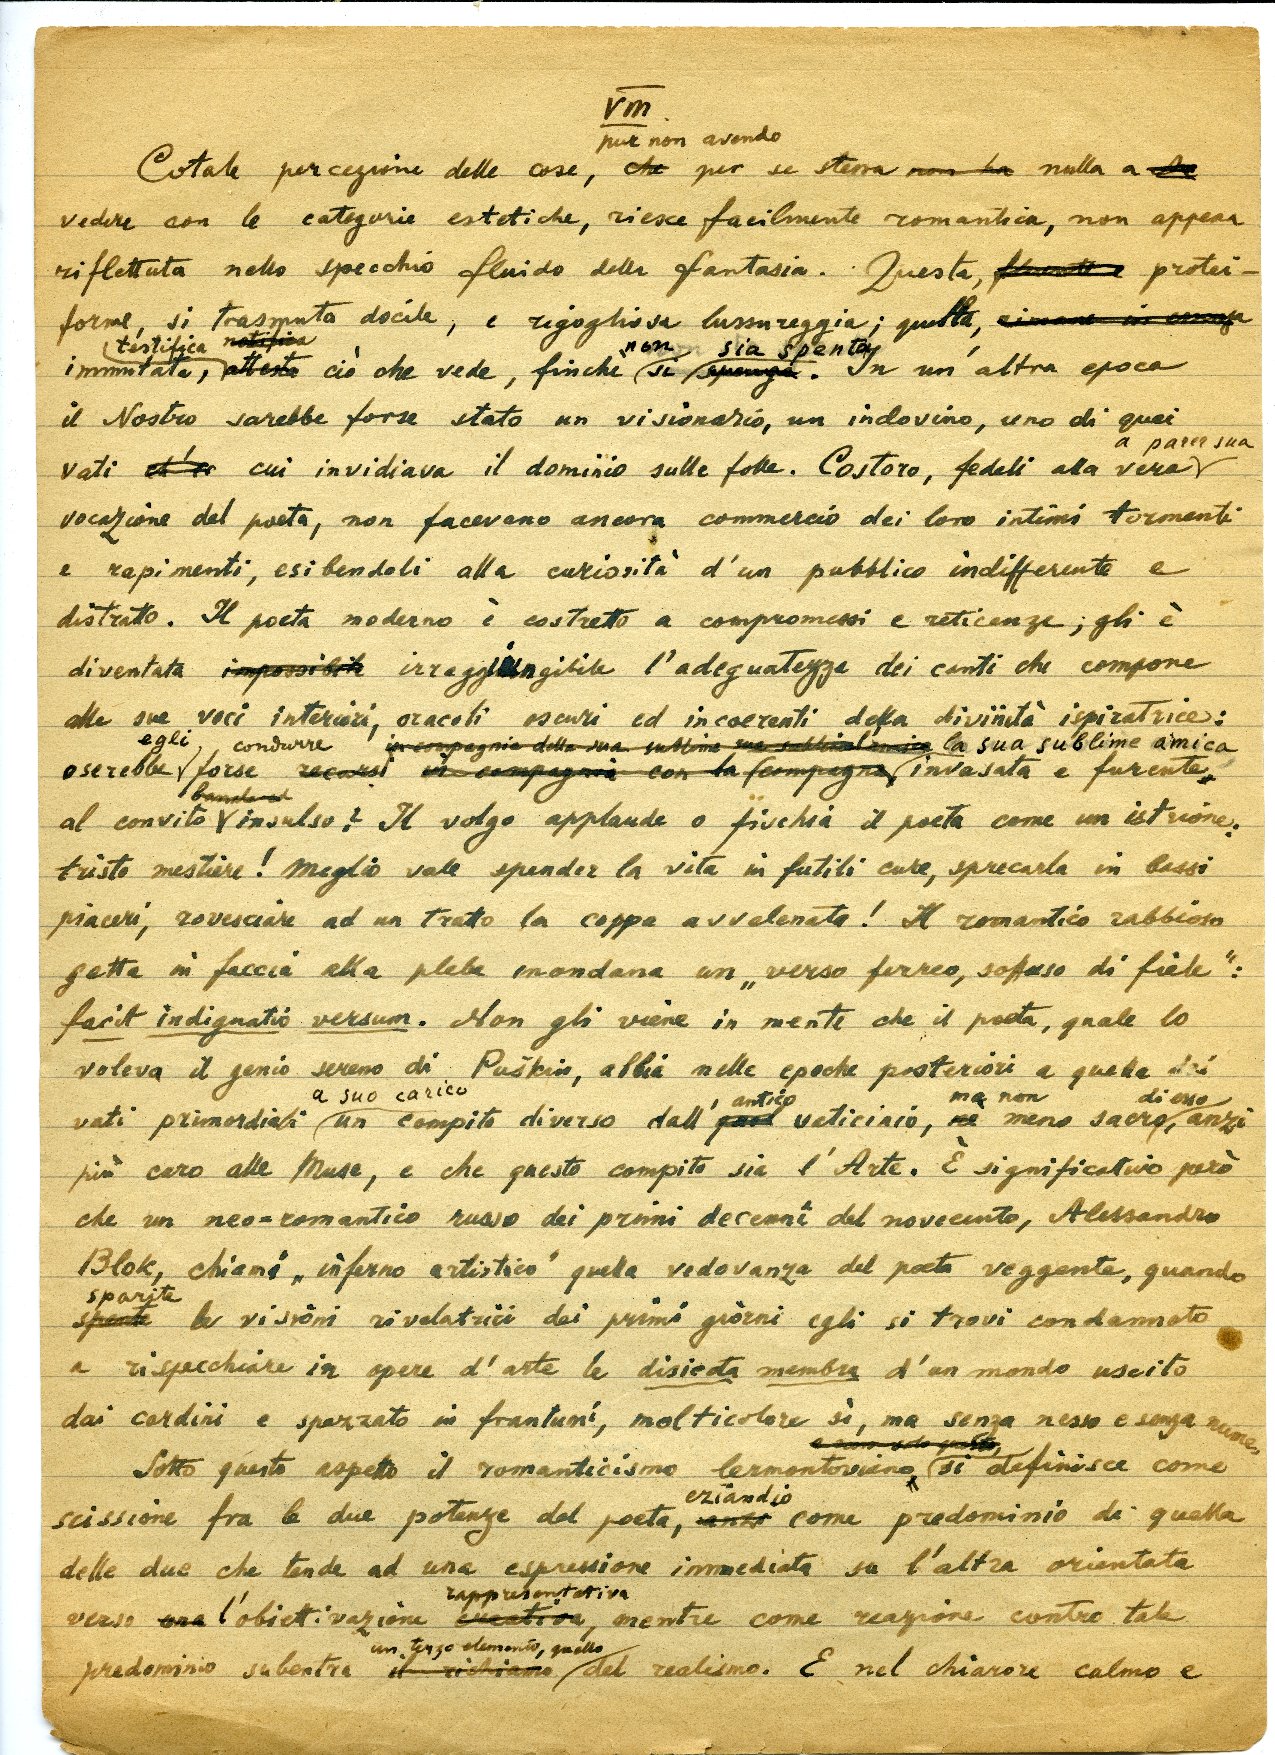 VIII
pur non avendo
Cotale percezione delle cose, che per se stessa non ha nulla a
vedere con le categorie estetiche, riesce facilmente romantica, non appena
riflettuta nello specchio fluido della fantasia. Questa, protei-
forme, si trasmuta docile, e rigogliosa lussureggia; quella, rimane in essenza
testifica notifica non sia spento
immutata, attesta ciò che vede, finchè si spenga. In un'altra epoca
il Nostro sarebbe forse stato un visionario, un indovino, uno di quei
a parer suo
vati cui invidiava il dominio sulle folle. Costoro, fedeli alla vera
vocazione del poeta, non facevano ancora commercio dei loro intimi tormenti
e rapimenti, esibendoli alla curiosità d'un pubblico indifferente e
distratto. Il poeta moderno è costretto a compromessi e reticenze; gli è
diventata impossibile irraggiungibile l'adeguatezza dei canti che compone
alle sue voci interiori, oracoli oscuri ed incoerenti della divinità ispiratrice:
egli condurre in compagnia della sua sublime la sua sublime amica
oserebbe forse recarsi in compagnia con la compagna invasata e furente„
banale ed
al convito insulso? Il volgo applaude o fischia il poeta come un istrione:
tristo mestiere! Meglio vale spender la vita in futili cure, sprecarla in bassi
piaceri, rovesciare ad un tratto la coppa avvelenata! Il romantico rabbioso
getta in faccia alla plebe mondana un „verso ferreo, soffuso di fiele“:
facit indignatio versum. Non gli viene in mente che il poeta, quale lo
voleva il genio sereno di Puškin, abbia nelle epoche posteriori a quella dei
a suo carico antico ma non di esso
vati primordiali un compito diverso dall' vaticinio, nè meno sacro, anzi
più caro alle Muse, e che questo compito sia l'Arte. È significativo però
che un neo-romantico russo dei primi decenni del novecento, Alessandro
Blok, chiami „inferno artistico“ quella vedovanza del poeta veggente, quando
sparite
spente le visioni rivelatrici dei primi giorni egli si trovi condannato
a rispecchiare in opere d'arte le disiecta membra d'un mondo uscito
dai cardini e spezzato in frantumi, molticolore sì, ma senza nesso e senza nume.
e non solo questo
Sotto questo aspetto il romanticismo lermontoviano si definisce come
eziandio
scissione fra le due potenze del poeta, anzi come predominio di quella
delle due che tende ad una espressione immediata su l'altra orientata
rappresentativa
verso una l'obiettivazione creativa, mentre come reazione contro tale
un terzo elemento, quello
predominio subentra il richiamo del realismo. E nel chiarore calmo e